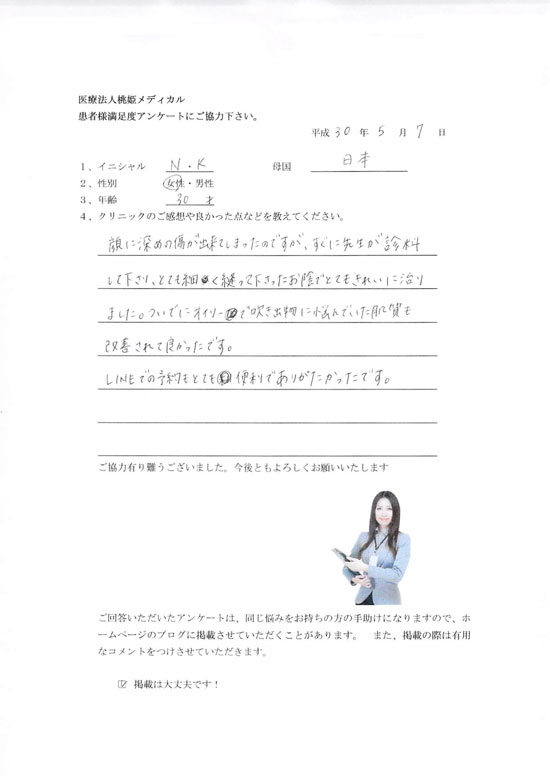 医療法人桃姫メディカル
患者様満足度アンケートにご協力下さい。
平成 30 年 5 月 7 日
1、イニシャル N・K 母国 日本
2、性別 女性・男性
3、年齢 30 才
4、クリニックのご感想や良かった点などを教えてください。
顔に深めの傷が出来てしまったのですが、すぐに先生が診料
して下さり、とても細く縫って下さったお陰でとてもきれいに治り
ました。ついでにオイリーで吹き出物に悩んでいた肌質も
改善されて良かったです。
LINEでの予約もとても便利でありがたかったです。
ご協力有り難うございました。今後ともよろしくお願いいたします
ご回答いただいたアンケートは、同じ悩みをお持ちの方の手助けになりますので、ホ
ームページのブログに掲載させていただくことがあります。 また、掲載の際は有用
なコメントをつけさせていただきます。
☑ 掲載は大丈夫です！